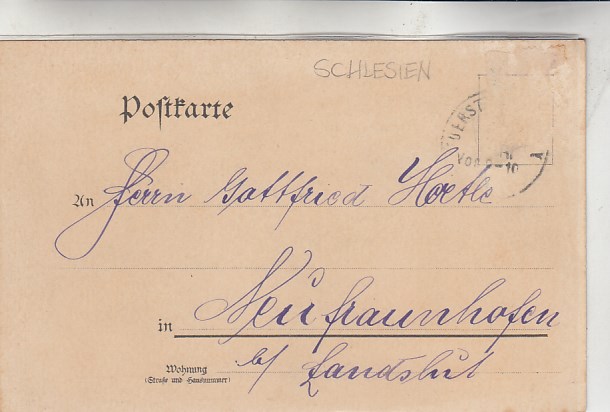 SCHLESIEN
Postkarte
UERST
Vor
10
A
An Herrn Gottfried Hoetle
in Neufraunhofen
Wohnung b/ Landshut
(Straße und Hausnummer)